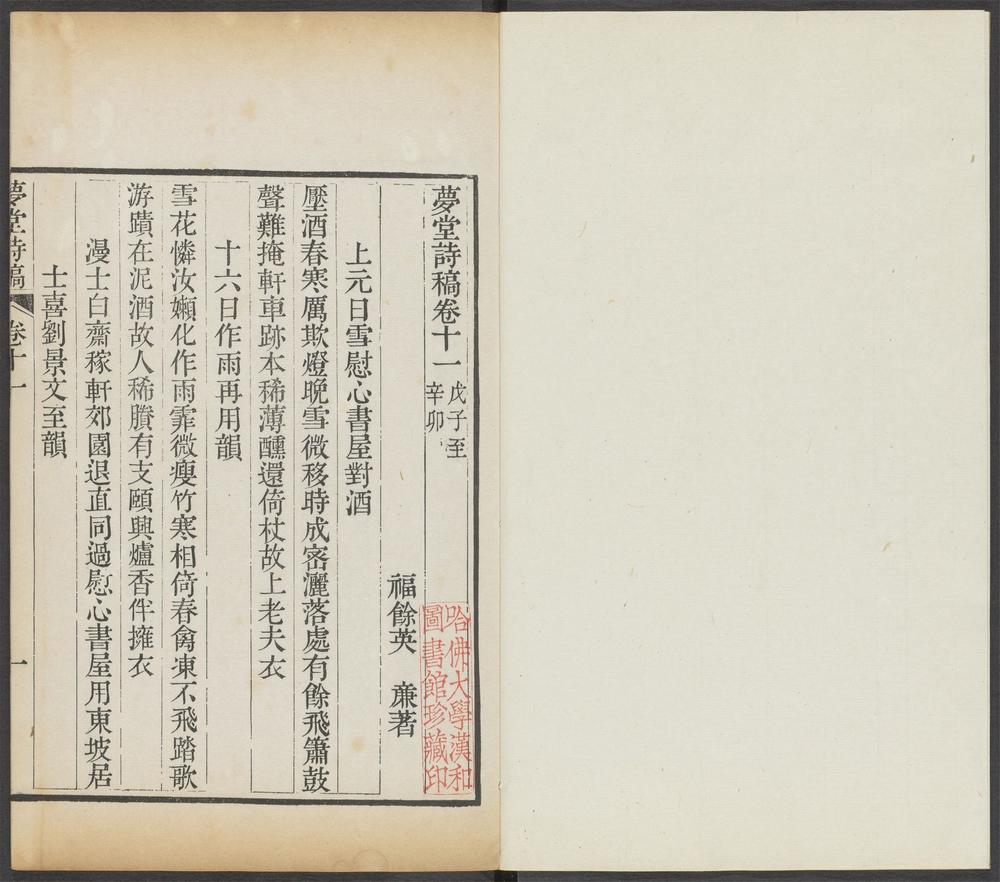 夢堂詩稿卷十一 戊子至
辛卯
哈佛大學漢和
圖書館珍藏印
福餘英 廉著
上元日雪慰心書屋對酒
壓酒春寒厲欺燈晚雪微移時成密灑落處有餘飛簫鼓
聲難掩軒車跡本稀薄醺還倚杖故上老夫衣
十六日作雨再用韻
雪花憐汝嬾化作雨霏微瘦竹寒相倚春禽凍不飛踏歌
游蹟在泥酒故人稀賸有支頤興爐香伴擁衣
漫士白齋稼軒郊園退直同過慰心書屋用東坡居
士喜劉景文至韻
夢堂詩稿 卷十一 一